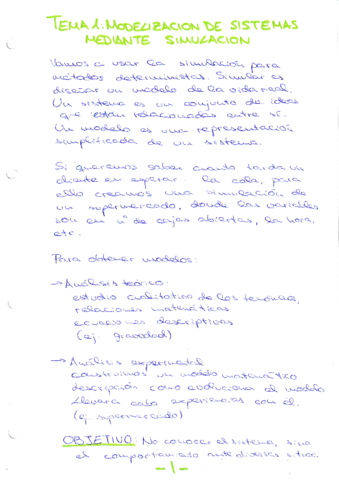 TEMA 1. MODELIZACION DE SISTEMAS
MEDIANTE SIMULACION
Vamos a usar la simulación para
métodos deterministas. Simular es
diseñar un modelo de la vida real.
Un sistema es un conjunto de ideas
que estan relacionadas entre sí.
Un modelo es una representación
simplificada de un sistema.
Si queremos saber cuanto tarda un
cliente en esperar la cola, para
ello creamos una simulación de
un supermercado, donde las variables
son en nº de cajas abiertas, la hora,
etc.
Para obtener modelos:
→ Análisis teórico:
estudio cualitativo de los
relaciones matemáticas
ecuaciones descriptivas
(ej. gravedad)
→ Análisis experimental
construimos un modelo matemático
descripción como evoluciona el modelo
Llevara cabo experiencias con él.
(ej. supermercado)
OBJETIVO: No conocer el sistema, sino
el comportamiento ante diversas
-1-